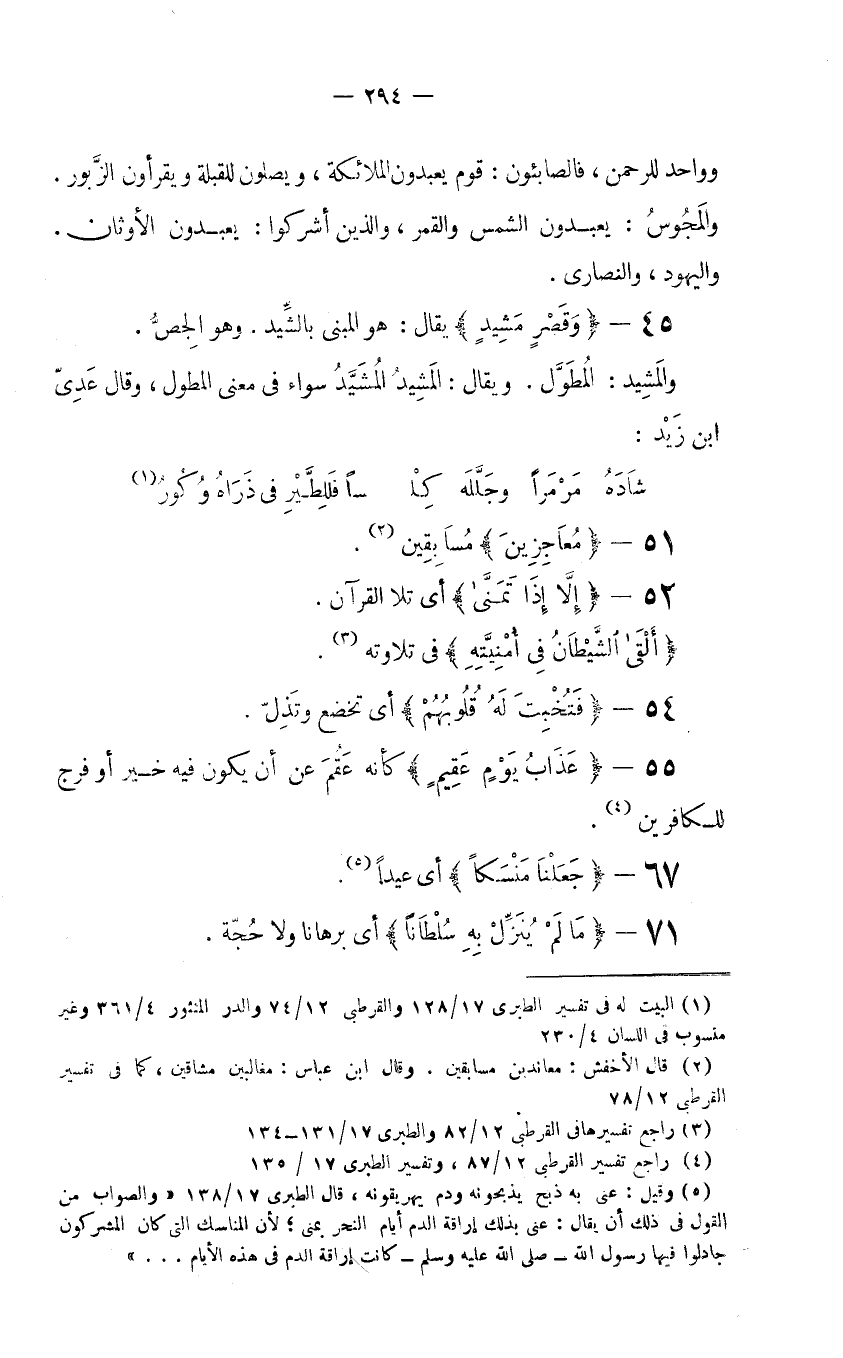 — ٢٩٤ —
وواحد للرحمن ، فالصابئون : قوم يعبدون الملائكة ، ويصلون للقبلة ويقرأون الزَّبور .
والمَجُوسُ : يعبدون الشمس والقمر ، والذين أشركوا : يعبدون الأوثان .
واليهود ، والنصارى .
٤٥ — ﴿ وَقَصْرٍ مَشِيدٍ ﴾ يقال : هو المبنى بالشِّيد . وهو الجِصُّ .
والمَشِيد : المُطَوَّل . ويقال : المَشِيدُ المُشَيَّدُ سواء فى معنى المطول ، وقال عَدِىّ
ابن زَيْد :
شَادَهُ مَرْمَراً وجَلَّلَه كِلْـ ـساً فَلِلطَّيْرِ فى ذَرَاهُ وُكُورُ(١)
٥١ — ﴿ مُعَاجِزِينَ ﴾ مُسَابِقِين (٢) .
٥٢ — ﴿ إِلَّا إِذَا تَمَنَّىٰ ﴾ أى تلا القرآن .
﴿ أَلْقَى ٱلشَّيْطَانُ فِى أُمْنِيَّتِهِ ﴾ فى تلاوته (٣) .
٥٤ — ﴿ فَتُخْبِتَ لَهُ قُلُوبُهُمْ ﴾ أى تخضع وتَذِلّ .
٥٥ — ﴿ عَذَابُ يَوْمٍ عَقِيمٍ ﴾ كأنه عَقُمَ عن أن يكون فيه خير أو فرج
للكافرين (٤) .
٦٧ — ﴿ جَعَلْنَا مَنْسَكاً ﴾ أى عيداً (٥) .
٧١ — ﴿ مَا لَمْ يُنَزِّلْ بِهِ سُلْطَاناً ﴾ أى برهانا ولا حُجّة .
(١) البيت له فى تفسير الطبرى ١٢٨/١٧ والقرطبى ٧٤/١٢ والدر المنثور ٣٦١/٤ وغير
منسوب فى اللسان ٢٣٠/٤
(٢) قال الأخفش : معاندين مسابقين . وقال ابن عباس : مغالبين مشاقين ، كما فى تفسير
القرطبى ٧٨/١٢
(٣) راجع تفسيرها فى القرطبى ٨٢/١٢ والطبرى ١٣١/١٧–١٣٤
(٤) راجع تفسير القرطبى ٨٧/١٢ ، وتفسير الطبرى ١٧ / ١٣٥
(٥) وقيل : عنى به ذبح يذبحونه ودم يهريقونه ، قال الطبرى ١٣٨/١٧ « والصواب من
القول فى ذلك أن يقال : عنى بذلك إراقة الدم أيام النحر بمنى ؛ لأن المناسك التى كان المشركون
جادلوا فيها رسول الله ــ صلى الله عليه وسلم ــ كانت إراقة الدم فى هذه الأيام . . . »